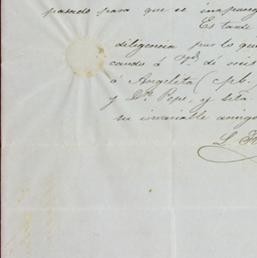 pasado para que se
Es tarde
diligencia por lo que
cando á Vd. de seis
á Angelita (
y Dn. Pepe, y sita
su invariable amigo
L.